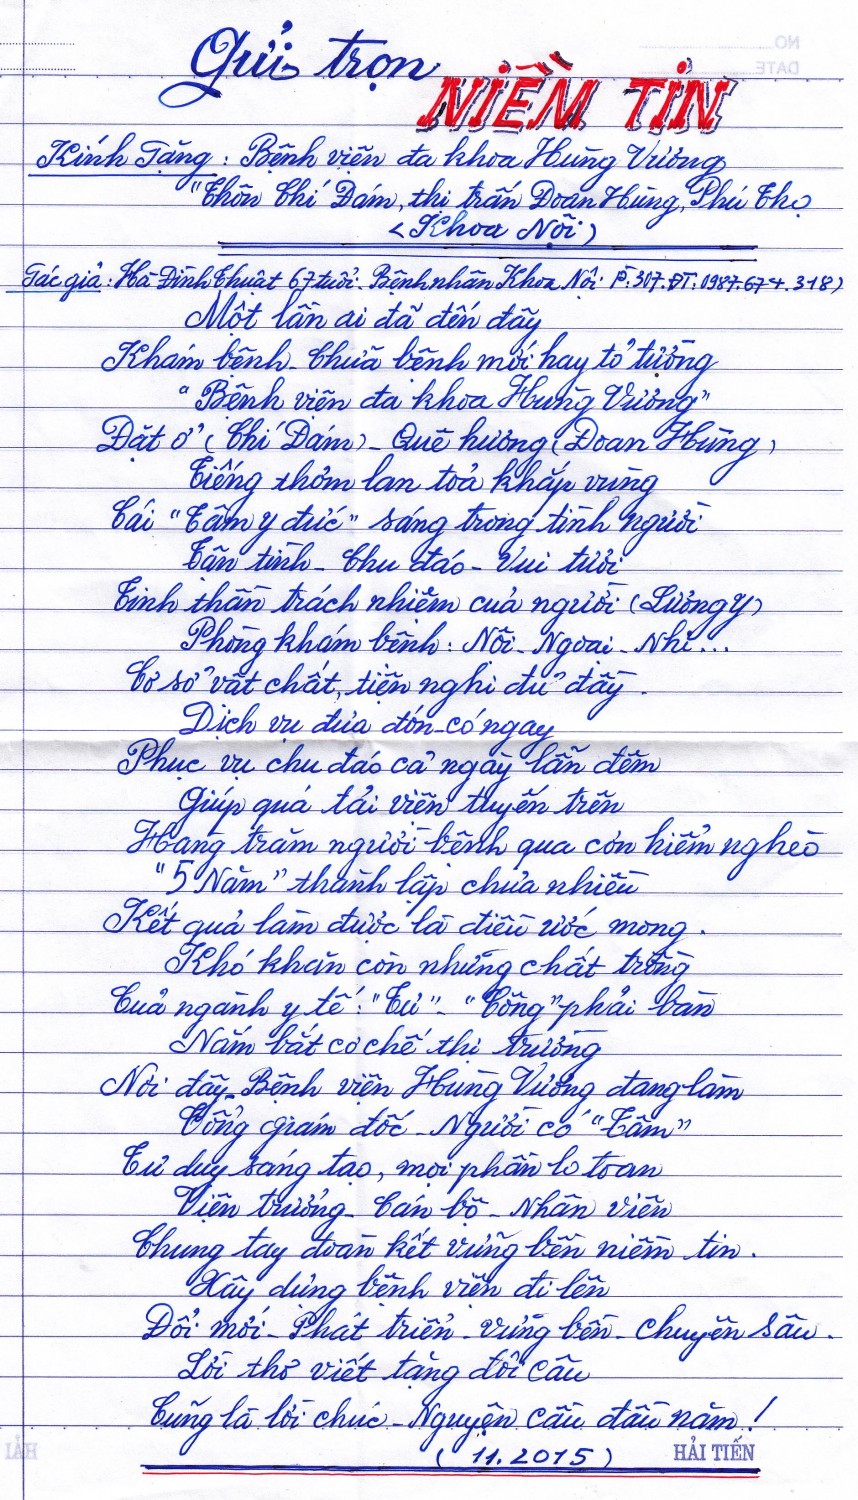 Gửi trọn NIỀM TIN
Kính Tặng: Bệnh viện đa khoa Hùng Vương
"Thôn Chí Đám, thị trấn Đoan Hùng, Phú Thọ
(Khoa Nội)
Tác giả: Hà Đình Thuật 67 tuổi. Bệnh nhân Khoa Nội P. 307. ĐT: 0987.674.318)
Một lần ai đã đến đây
Khám bệnh - Chữa bệnh mới hay tỏ tường
"Bệnh viện đa khoa Hùng Vương"
Đặt ở (Chí Đám) - Quê hương (Đoan Hùng)
Tiếng thơm lan toả khắp vùng
Cái "Tâm y đức" sáng trong tình người
Tận tình - Chu đáo - Vui tươi
Tinh thần trách nhiệm của người (Lương Y)
Phòng khám bệnh: Nội - Ngoại - Nhi...
Cơ sở vật chất, tiện nghi đủ đầy.
Dịch vụ đưa đón - có ngay
Phục vụ chu đáo cả ngày lẫn đêm
Giúp quá tải viện tuyến trên
Hàng trăm người bệnh qua cơn hiểm nghèo
"5 Năm" thành lập chưa nhiều
Kết quả làm được là điều ước mong.
Khó khăn còn những chất trồng
Của ngành y tế: "Tư" - "Công" phải bàn
Nắm bắt cơ chế thị trường
Nơi đây - Bệnh viện Hùng Vương đang làm
Tổng giám đốc - Người có "Tâm"
Tư duy sáng tạo, mọi phần lo toan
Viện trưởng - Cán bộ - Nhân viên
Chung tay đoàn kết vững bền niềm tin.
Xây dựng bệnh viện đi lên
Đổi mới - Phát triển - vững bền - chuyên sâu.
Lời thơ viết tặng đôi câu
Cũng là lời chúc - Nguyện cầu đầu năm!
(11.2015)
HẢI TIẾN